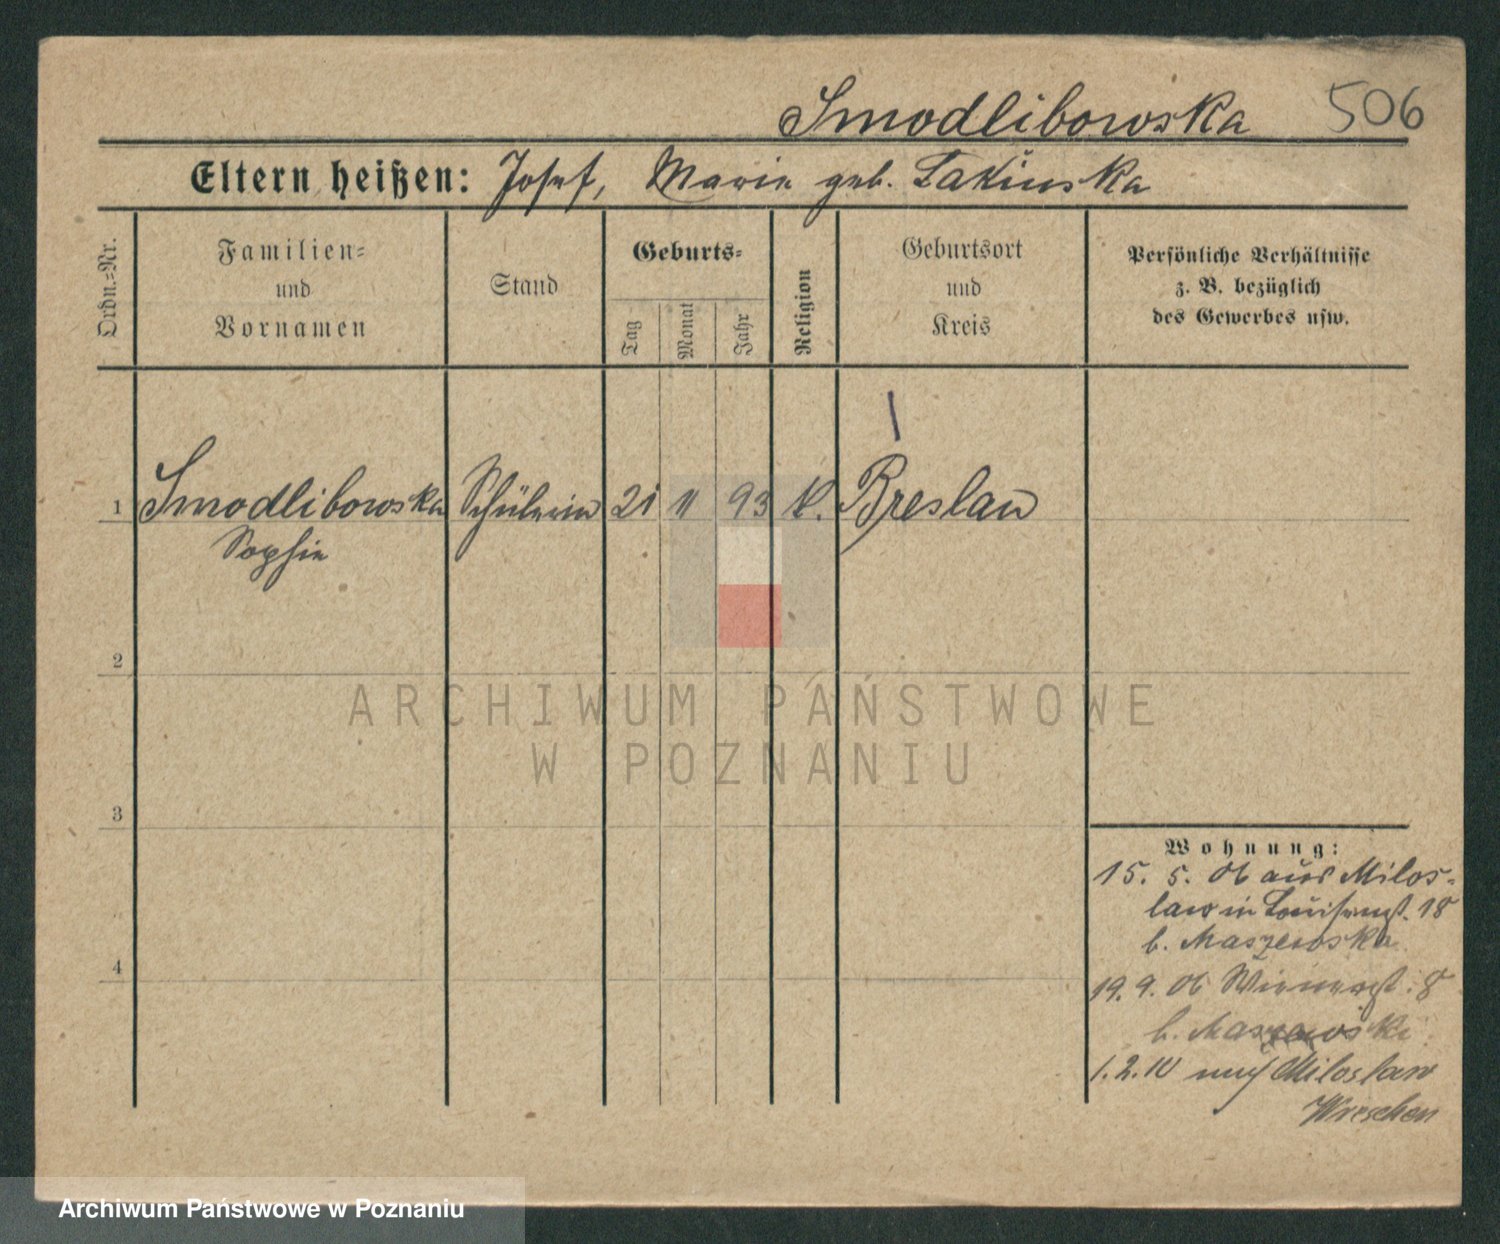 Smodlibowska 506
Eltern heißen: Josef, Marie geb. Lakinska
Ordn.=Nr.
Familien=
und
Vornamen
Stand
Geburts=
Tag
Monat
Jahr
Religion
Geburtsort
und
Kreis
Persönliche Verhältnisse
z. B. bezüglich
des Gewerbes usw.
1 Smodlibowska Schülerin 21 11 93 k. Breslau
Sophie
2
3
4
Wohnung:
15. 5. 06 aus Milos-
law in Louisenst. 18
b. Maszewska
19. 9. 06 Wienerst. 8
b. Maszewski
1. 2. 10 nach Miloslaw
Wreschen
ARCHIWUM PAŃSTWOWE
W POZNANIU
Archiwum Państwowe w Poznaniu